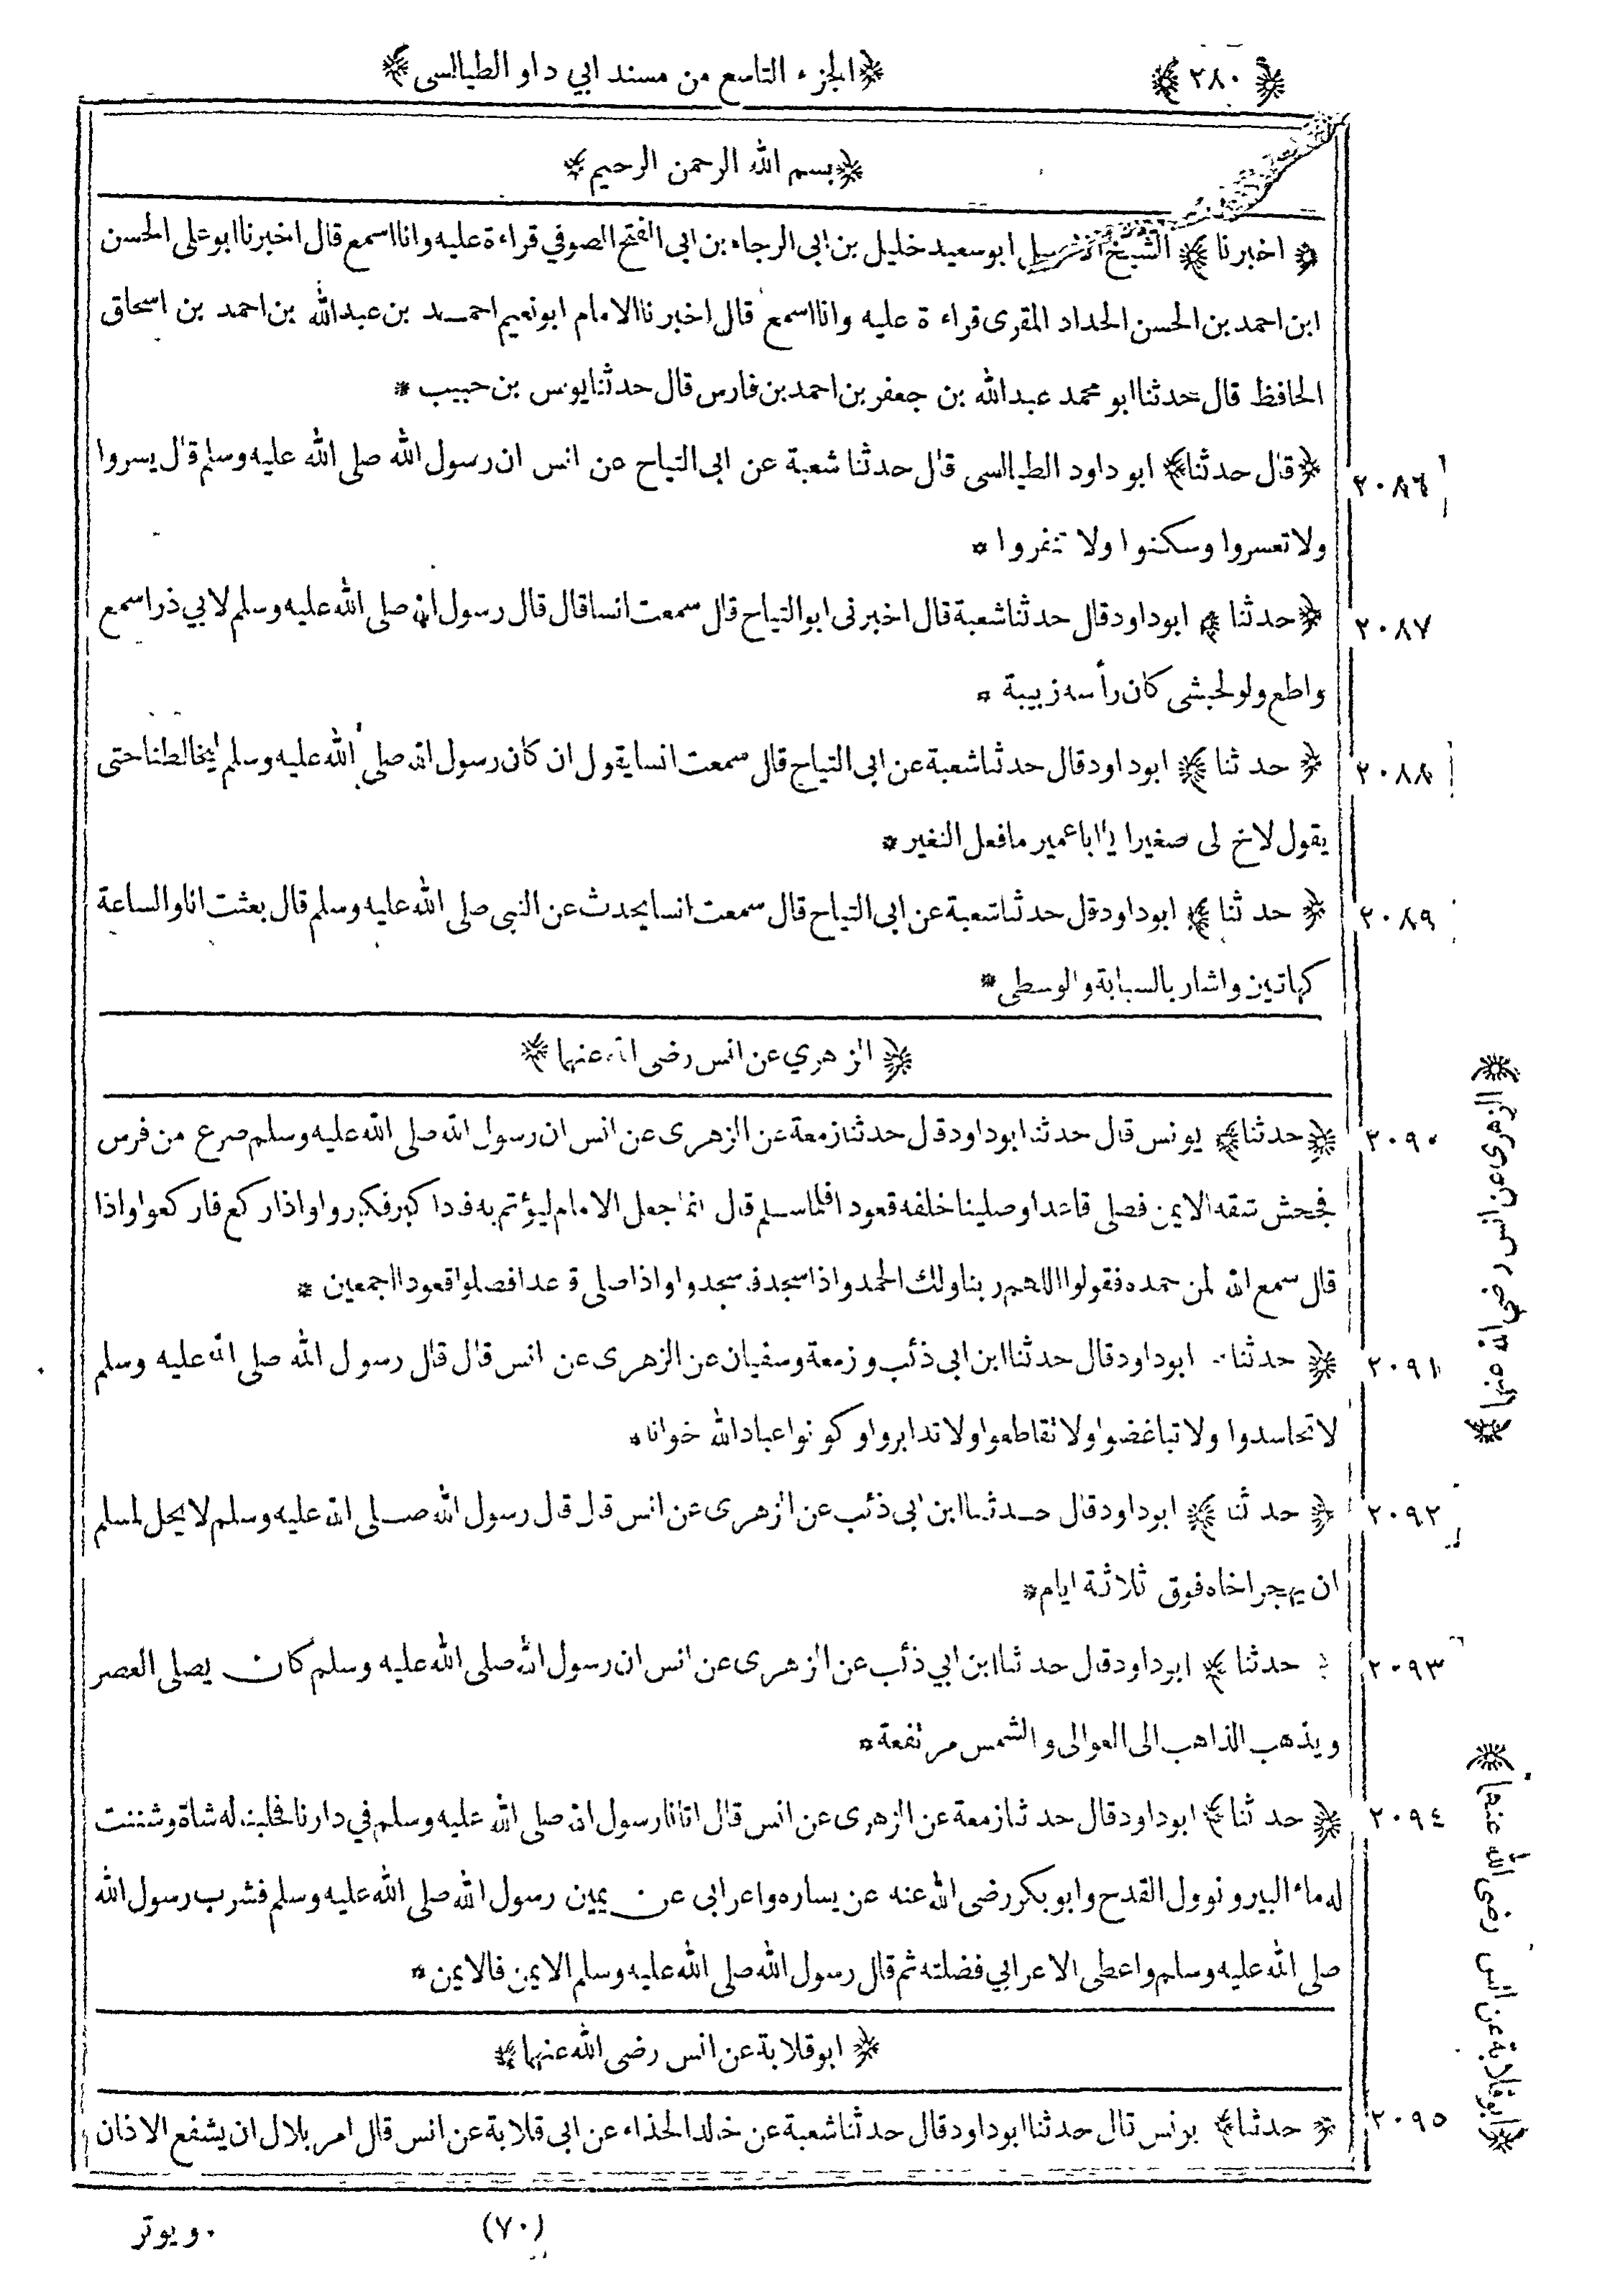 ﴿٢٨٠﴾ ﴿الجزء التاسع من مسند ابي داو الطيالسى﴾
﴿بسم الله الرحمن الرحيم﴾
﴿اخبرنا﴾ الشيخ ابوسعيد خليل بن ابى الرجاء بن ابى الفتح الصوفي قراءة عليه وانا اسمع قال اخبرنا ابوعلى الحسن
ابن احمد بن الحسن الحداد المقرى قراءة عليه وانا اسمع قال اخبرنا الامام ابونعيم احمد بن عبدالله بن احمد بن اسحاق
الحافظ قال حدثنا ابو محمد عبدالله بن جعفر بن احمد بن فارس قال حدثنا يونس بن حبيب *
٢٠٨٦ ﴿قال حدثنا﴾ ابو داود الطيالسى قال حدثنا شعبة عن ابى التياح عن انس ان رسول الله صلى الله عليه وسلم قال يسروا
ولا تعسروا وسكنوا ولا تنفروا *
٢٠٨٧ ﴿حدثنا﴾ ابوداود قال حدثنا شعبة قال اخبرنى ابو التياح قال سمعت انسا قال قال رسول الله صلى الله عليه وسلم لابي ذر اسمع
واطع ولو لحبشى كان رأسه زبيبة *
٢٠٨٨ ﴿حدثنا﴾ ابوداود قال حدثنا شعبة عن ابى التياح قال سمعت انسا يقول ان كان رسول الله صلى الله عليه وسلم ليخالطنا حتى
يقول لاخ لى صغير ايا ابا عمير ما فعل النغير *
٢٠٨٩ ﴿حدثنا﴾ ابوداود قال حدثنا شعبة عن ابى التياح قال سمعت انسا يحدث عن النبى صلى الله عليه وسلم قال بعثت انا والساعة
كهاتين واشار بالسبابة والوسطى *
﴿الزهري عن انس رضى الله عنهما﴾
٢٠٩٠ ﴿حدثنا﴾ يونس قال حدثنا ابوداود قال حدثنا زمعة عن الزهرى عن انس ان رسول الله صلى الله عليه وسلم صرع من فرس
فجحش شقه الايمن فصلى قاعدا وصلينا خلفه قعودا فلما سلم قال انما جعل الامام ليؤتم به فاذا كبر فكبروا واذا ركع فاركعوا واذا
قال سمع الله لمن حمده فقولوا اللهم ربنا ولك الحمد واذا سجد فاسجدوا واذا صلى قاعدا فصلوا قعودا اجمعين *
٢٠٩١ ﴿حدثنا﴾ ابوداود قال حدثنا ابن ابى ذئب وزمعة وسفيان عن الزهرى عن انس قال قال رسول الله صلى الله عليه وسلم
لا تحاسدوا ولا تباغضوا ولا تقاطعوا ولا تدابروا وكونوا عباد الله اخوانا *
٢٠٩٢ ﴿حدثنا﴾ ابوداود قال حدثنا ابن ابي ذئب عن الزهرى عن انس قال قال رسول الله صلى الله عليه وسلم لا يحل لمسلم
ان يهجر اخاه فوق ثلاثة ايام *
٢٠٩٣ ﴿حدثنا﴾ ابوداود قال حدثنا ابن ابي ذئب عن الزهرى عن انس ان رسول الله صلى الله عليه وسلم كان يصلى العصر
ويذهب الذاهب الى العوالى والشمس مرتفعة *
٢٠٩٤ ﴿حدثنا﴾ ابوداود قال حدثنا زمعة عن الزهرى عن انس قال اتانا رسول الله صلى الله عليه وسلم في دارنا فحلبنا له شاة وشننت
له ماء البير ونوول القدح وابوبكر رضى الله عنه عن يساره واعرابى عن يمين رسول الله صلى الله عليه وسلم فشرب رسول الله
صلى الله عليه وسلم واعطى الاعرابي فضلته ثم قال رسول الله صلى الله عليه وسلم الايمن فالايمن *
﴿ابوقلابة عن انس رضى الله عنهما﴾
٢٠٩٥ ﴿حدثنا﴾ يونس قال حدثنا ابوداود قال حدثنا شعبة عن خالد الحذاء عن ابى قلابة عن انس قال امر بلال ان يشفع الاذان
ويوتر
(٧٠)
﴿الزهرى عن انس رضى الله عنهما﴾
﴿ابوقلابة عن انس رضى الله عنهما﴾